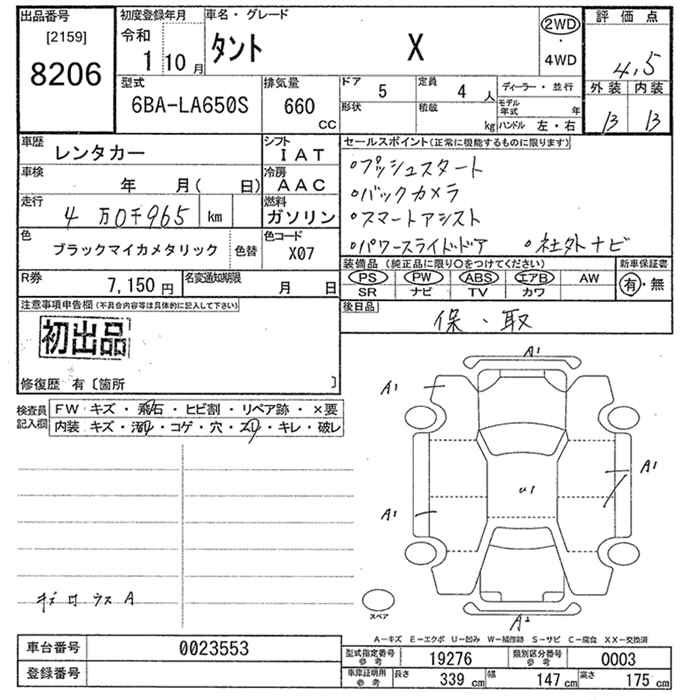 出品番号
[2159]
8206
初度登録年月
令和
1 10月
車名・グレード
タント X
2WD
・
4WD
評価点
4.5
外装 内装
B B
型式
6BA-LA650S
排気量
660
CC
ドア 5
形状
定員 4 人
積載 kg
ディーラー・並行
モデル年式 年
ハンドル 左・右
車歴 レンタカー
シフト IAT
車検 年 月( 日)
冷房 AAC
走行 4万0千965 km
燃料 ガソリン
色 ブラックマイカメタリック 色替
色コード X07
R券 7,150円
名変通知期限 月 日
セールスポイント(正常に機能するものに限ります)
・プッシュスタート
・バックカメラ
・スマートアシスト
・パワースライドドア ・社外ナビ
装備品(純正品に限り○をつけてください)
PS PW ABS エアB AW
SR ナビ TV カワ
新車保証書
有・無
後日品
保・取
注意事項申告欄(不具合内容等は具体的に記入して下さい)
初出品
修復歴 有〔箇所 〕
検査員記入欄
FW キズ・飛石・ヒビ割・リペア跡・×要
内装 キズ・汚れ・コゲ・穴・スレ・キレ・破レ
A1
A1
A1
A1
U1
A2
スペア
A-キズ E-エクボ U-凹み W-補修跡 S-サビ C-腐食 XX-交換済
車台番号 0023553
登録番号
型式指定番号 参考 19276
類別区分番号 参考 0003
車庫証明用 参考 長さ 339cm 幅 147cm 高さ 175cm